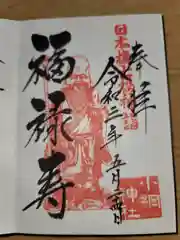 奉拝
日本橋七福神
令和三年 五月二四日
福禄寿
小網神社